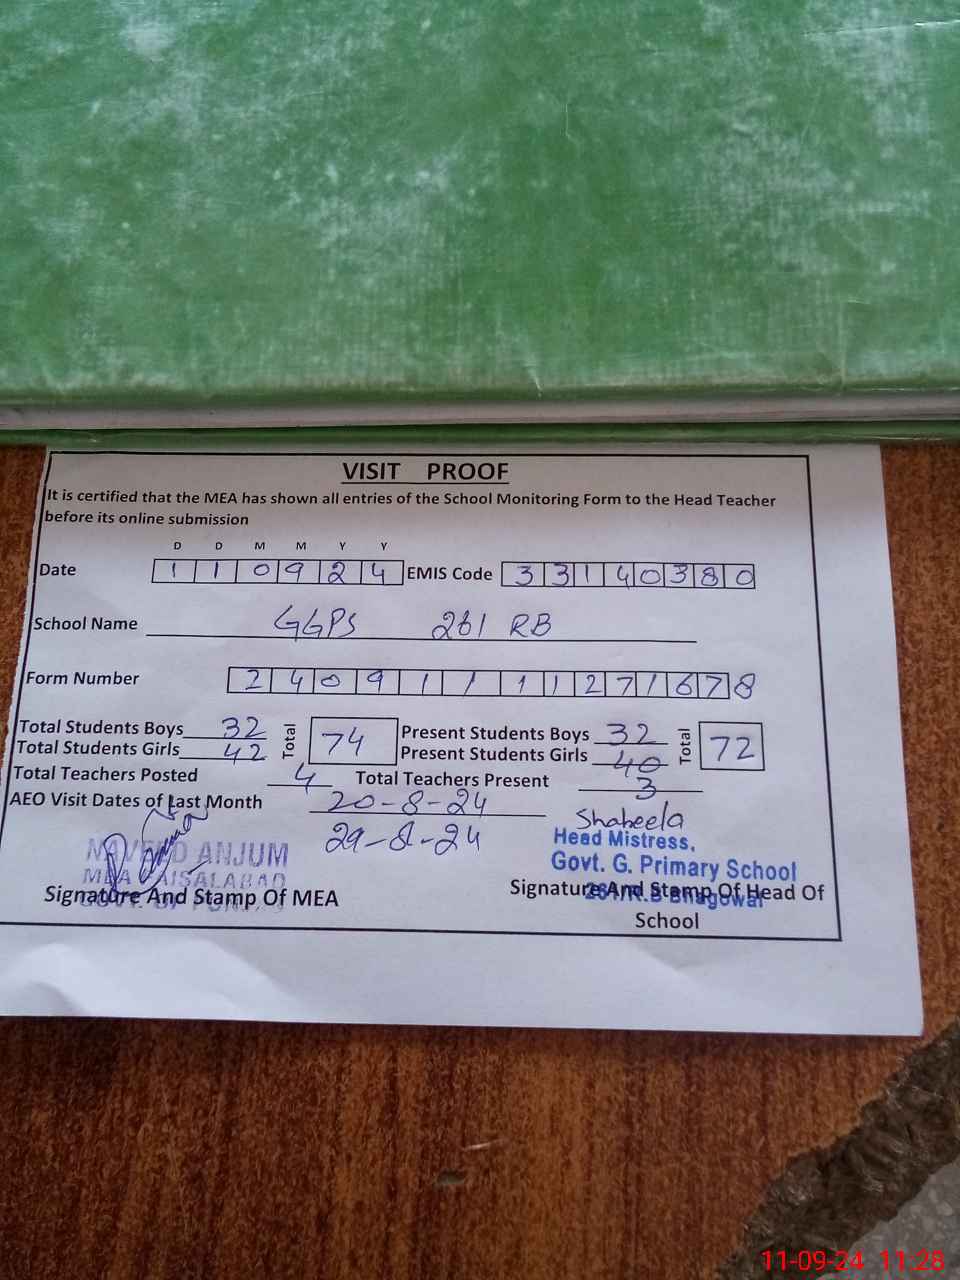 VISIT PROOF
It is certified that the MEA has shown all entries of the School Monitoring Form to the Head Teacher
before its online submission
D D M M Y Y
Date 1 1 0 9 2 4 EMIS Code 3 3 1 4 0 3 8 0
School Name GGPS 261 RB
Form Number 2 4 0 9 1 1 1 1 2 7 1 6 7 8
Total Students Boys 32 Total 74 Present Students Boys 32 Total 72
Total Students Girls 42 Present Students Girls 40
Total Teachers Posted 4 Total Teachers Present 3
AEO Visit Dates of Last Month 20-8-24
29-8-24
Shabeela
NAVEED ANJUM
MEA FAISALABAD
Head Mistress,
Govt. G. Primary School
261/R.B Bhagowal
Signature And Stamp Of MEA
Signature And Stamp Of Head Of
School
11-09-24 11:28